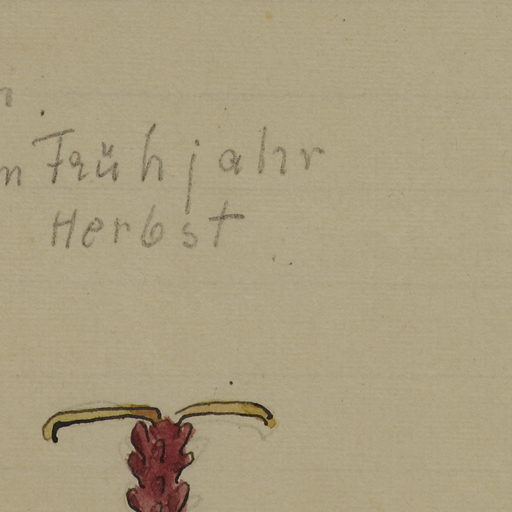 n Frühjahr
Herbst